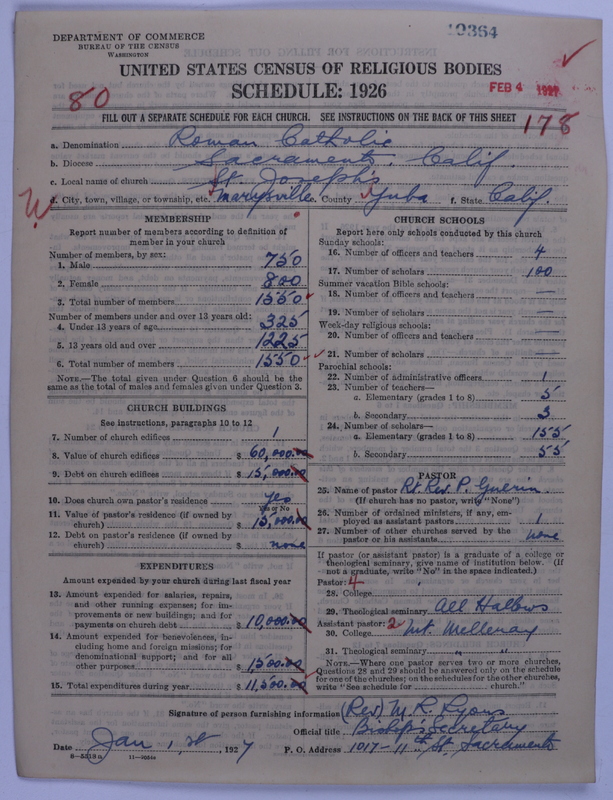 10364
DEPARTMENT OF COMMERCE
BUREAU OF THE CENSUS
WASHINGTON
UNITED STATES CENSUS OF RELIGIOUS BODIES
SCHEDULE: 1926
FEB 4 1927
80
178
FILL OUT A SEPARATE SCHEDULE FOR EACH CHURCH. SEE INSTRUCTIONS ON THE BACK OF THIS SHEET
a. Denomination Roman Catholic
b. Diocese Sacramento, Calif.
c. Local name of church St. Joseph's
d. City, town, village, or township, etc. Marysville e. County Yuba f. State Calif.
MEMBERSHIP
Report number of members according to definition of
member in your church
Number of members, by sex:
1. Male 750
2. Female 800
3. Total number of members 1550
Number of members under and over 13 years old:
4. Under 13 years of age 325
5. 13 years old and over 1225
6. Total number of members 1550
NOTE.—The total given under Question 6 should be the
same as the total of males and females given under Question 3.
CHURCH BUILDINGS
See instructions, paragraphs 10 to 12
7. Number of church edifices 1
8. Value of church edifices $ 60,000.00
9. Debt on church edifices $ 15,000.00
10. Does church own pastor's residence yes
Yes or No
11. Value of pastor's residence (if owned by
church) $ 15,000.00
12. Debt on pastor's residence (if owned by
church) $ none
EXPENDITURES
Amount expended by your church during last fiscal year
13. Amount expended for salaries, repairs,
and other running expenses; for im-
provements or new buildings; and for
payments on church debt $ 10,000.00
14. Amount expended for benevolences, in-
cluding home and foreign missions; for
denominational support; and for all
other purposes $ 1500.00
15. Total expenditures during year $ 11,500.00
CHURCH SCHOOLS
Report here only schools conducted by this church
Sunday schools:
16. Number of officers and teachers 4
17. Number of scholars 100
Summer vacation Bible schools:
18. Number of officers and teachers —
19. Number of scholars —
Week-day religious schools:
20. Number of officers and teachers —
21. Number of scholars —
Parochial schools:
22. Number of administrative officers 1
23. Number of teachers—
a. Elementary (grades 1 to 8) 5
b. Secondary 3
24. Number of scholars—
a. Elementary (grades 1 to 8) 155
b. Secondary 55
PASTOR
25. Name of pastor Rt. Rev. P. Guerin
(If church has no pastor, write "None")
26. Number of ordained ministers, if any, em-
ployed as assistant pastors 1
27. Number of other churches served by the
pastor or his assistants none
If pastor (or assistant pastor) is a graduate of a college or
theological seminary, give name of institution below. (If
not a graduate, write "No" in the space indicated.)
Pastor: 4
28. College
29. Theological seminary All Hallows
Assistant pastor: 2
30. College Mt. Melleray
31. Theological seminary " "
NOTE.—Where one pastor serves two or more churches,
Questions 28 and 29 should be answered only on the schedule
for one of the churches; on the schedules for the other churches,
write "See schedule for church."
Signature of person furnishing information (Rev) M. R. Lyons
Official title Bishop's Secretary
Date Jan 1st, 1927 P. O. Address 1017-11th St. Sacramento
8-5313a 11-9034a